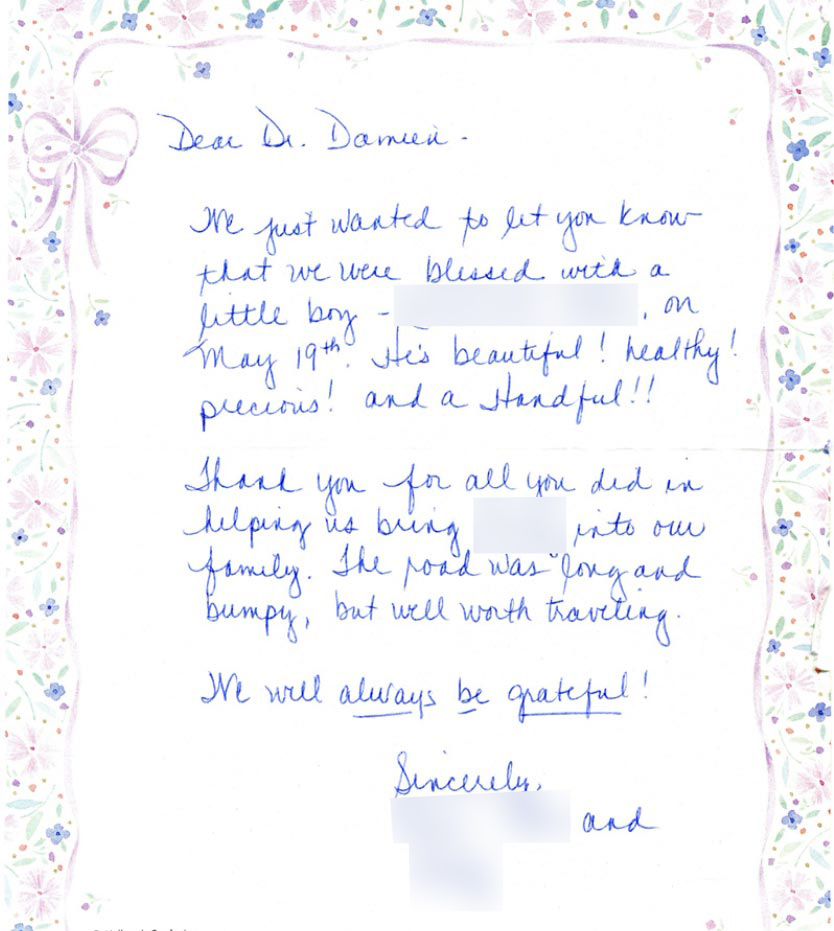 Dear Dr. Damien -
We just wanted to let you know
that we were blessed with a
little boy - , on
May 19th. He's beautiful! healthy!
precious! and a Handful!!
Thank you for all you did in
helping us bring into our
family. The road was long and
bumpy, but well worth traveling.
We will always be grateful!
Sincerely,
and